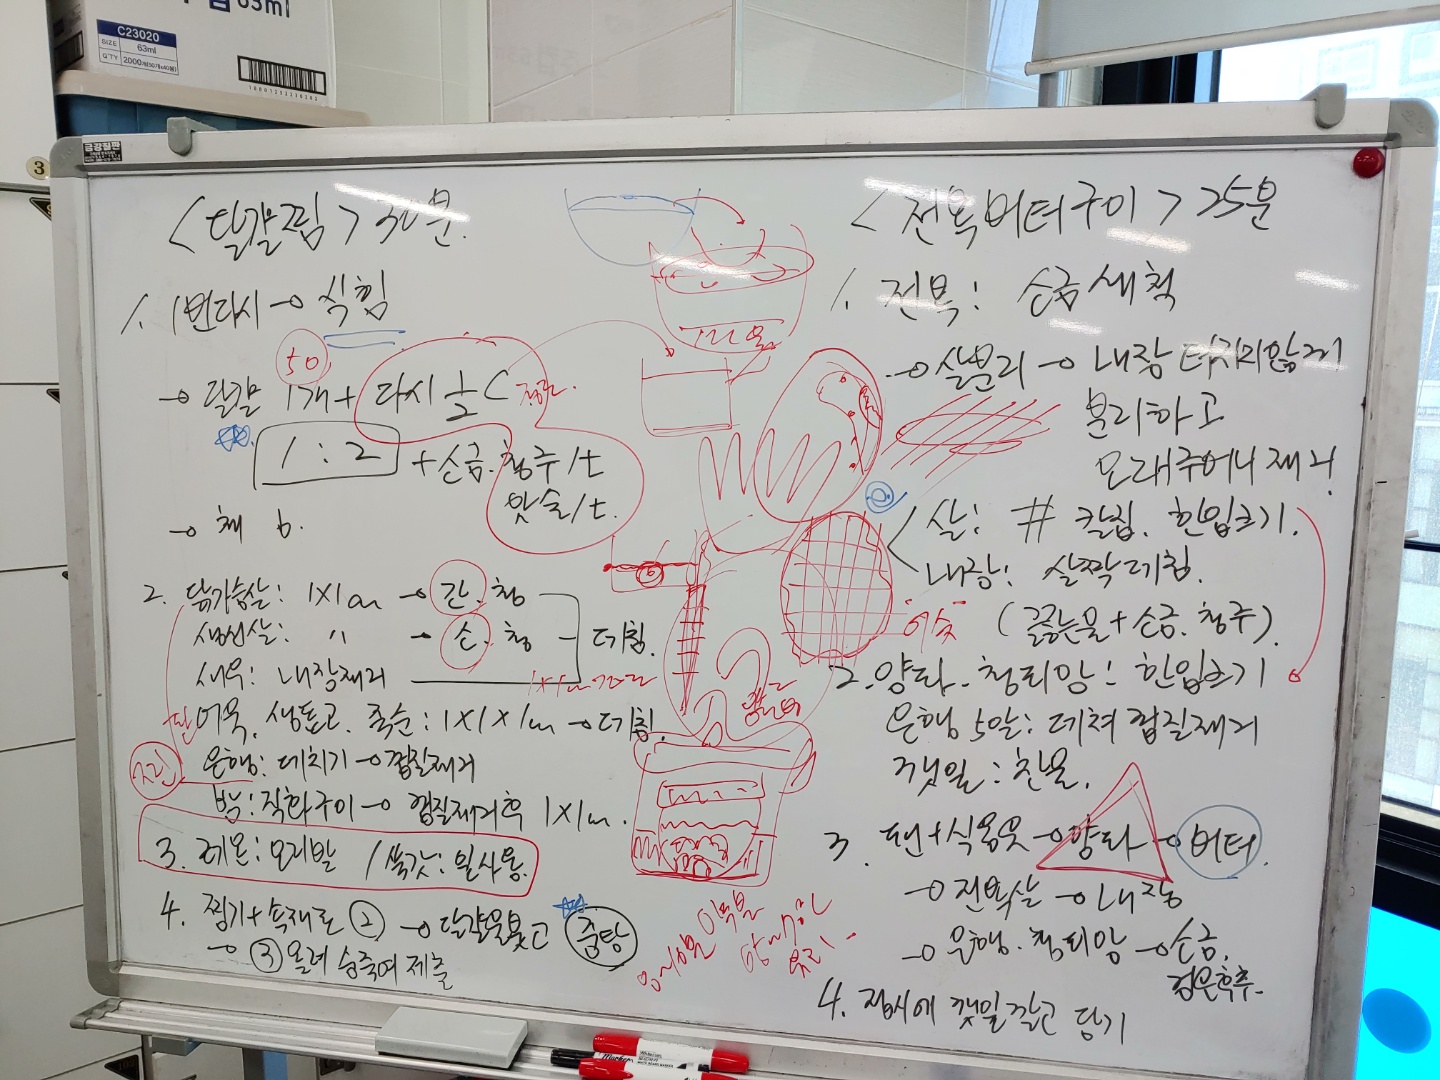 63ml
C23020
SIZE 63ml
Q'TY
3
금강칠판
<달걀찜> 30분.
1. 1번다시 → 식힘
50
→ 달걀 1개 + 다시 1/2 C
1 : 2 + 소금. 청주 1t
맛술 1t.
→ 체 b.
2. 닭가슴살: 1X1cm → 간. 청
생선살: 〃 → 소. 청 - 데침.
새우: 내장제거
어묵. 생표고. 죽순: 1X1X1cm → 데침.
은행: 데치기 → 껍질제거
밤: 직화구이 → 껍질제거후 1X1cm.
3. 레몬: 오리발 / 쑥갓: 잎사용.
4. 찜기 + 속재료 ② → 달걀물붓고 중탕
→ ③ 올려 제출
<전복버터구이> 25분
1. 전복: 소금세척
→ 살분리 → 내장 터지지않게
분리하고
모래주머니 제거
살: # 칼집. 한입크기.
내장: 살짝데침.
(끓는물 + 소금. 청주).
2. 양파. 청피망: 한입크기
은행 5알: 데쳐 껍질제거
깻잎: 찬물.
3. 팬 + 식용유 → 양파 → 버터.
→ 전복살 → 내장
→ 은행. 청피망 → 소금.
검은후추.
4. 접시에 깻잎깔고 담기